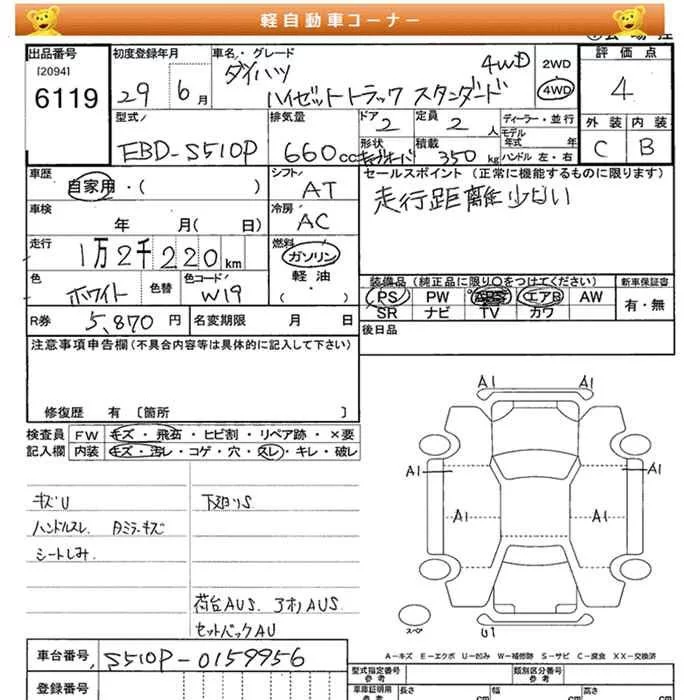 軽自動車コーナー
出品番号 初度登録年月 車名・グレード 評価点
[2094] 6119
29年 6月
ダイハツ 4WD 2WD
ハイゼットトラック スタンダード 4WD
4
型式 排気量 ドア 定員 ディーラー・並行 外装 内装
EBD-S510P 660cc 2 2人 モデル年式 年 C B
形状 積載 350kg ハンドル 左・右
車歴 シフト セールスポイント (正常に機能するものに限ります)
自家用・( ) AT 走行距離少ない
車検 冷房
年 月( 日) AC
走行 燃料
1万2千220km ガソリン
色 色替 色コード 軽油 装備品 (純正品に限り○をつけてください) 新車保証書
ホワイト W19 ( ・ ) PS PW ABS エアB AW 有・無
SR ナビ TV カワ
R券 5,870円 名変期限 月 日 後日品
注意事項申告欄(不具合内容等は具体的に記入して下さい)
修復歴 有 [箇所 ]
検査員 FW キズ・飛石・ヒビ割・リペア跡・×要
記入欄 内装 キズ・汚レ・コゲ・穴・スレ・キレ・破レ
キズU 下廻りS
ハンドルスレ
シートしみ
荷台AUS. アオリAUS
セットバックAU
A1 A1
A1 A1
A1 A1
U1
スペア
A-キズ E-エクボ U-凹み W-補修跡 S-サビ C-腐食 XX-交換済
車台番号 S510P-0159956
型式指定番号 参考 類別区分番号 参考
登録番号 車庫証明用 参考 長さ cm 幅 cm 高さ cm